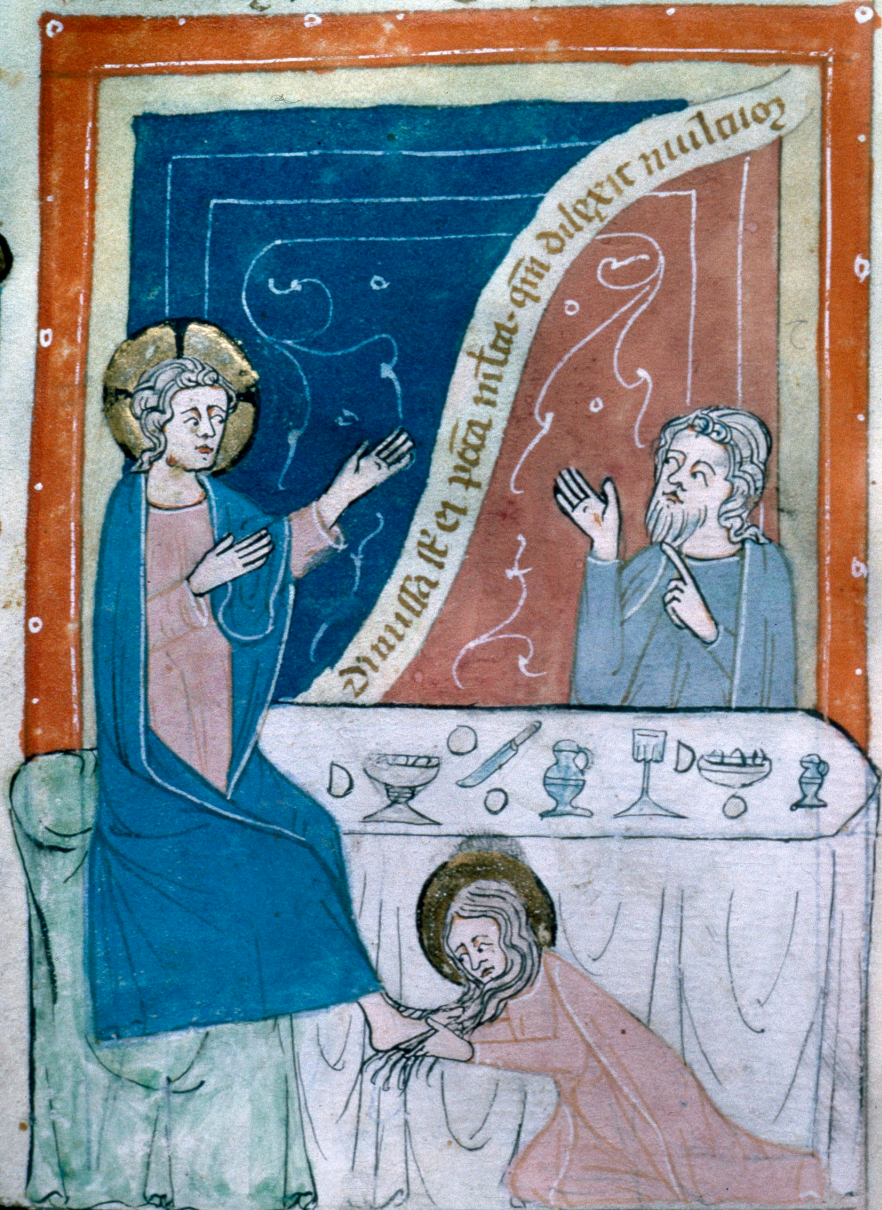 dimissa st̄ ei pcc̄a mlta · qm̄ dilexit multum